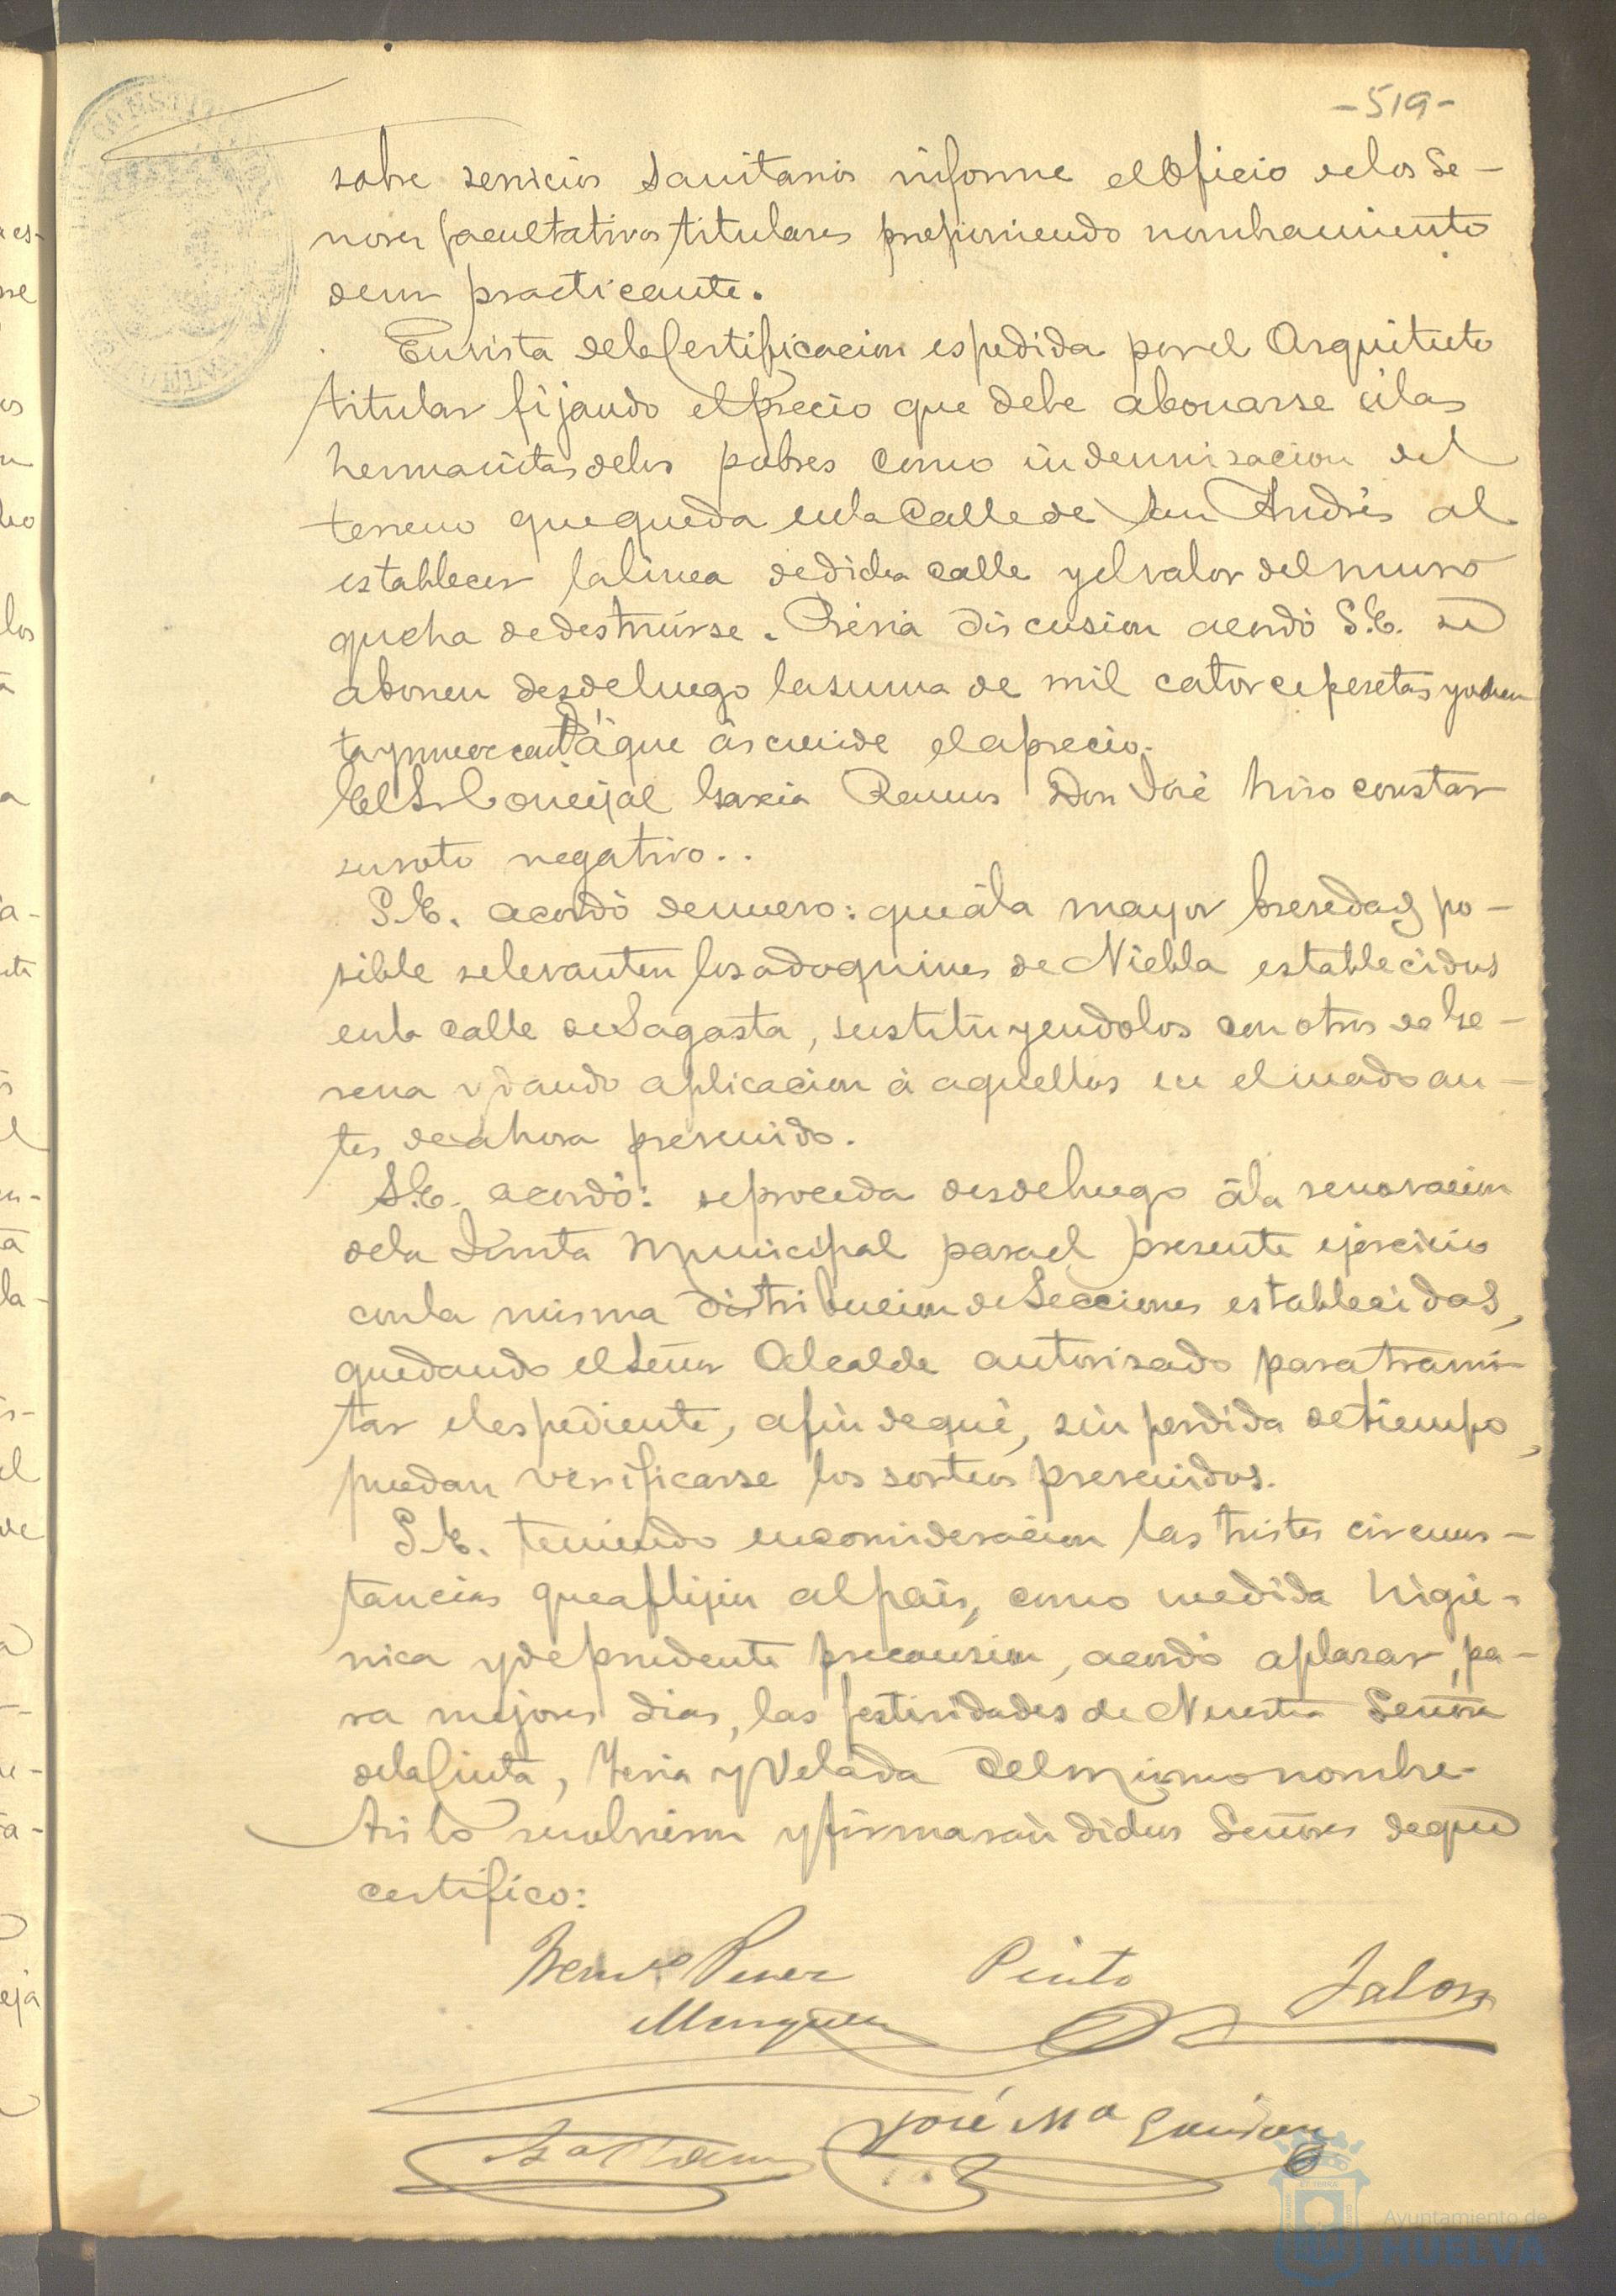 -519-
sobre servicios Sanitarios informe el Oficio de los Se-
ñores facultativos titulares proponiendo nombramiento
de un practicante.
En vista de la Certificacion espedida por el Arquitecto
titular fijando el precio que debe abonarse á las
hermanitas de los pobres como indemnisacion del
terreno que queda en la Calle de San Andrés al
establecer la linea de dicha calle y el valor del muro
que ha de destruirse. Prévia discusion acordó S.E. se
abonen desde luego la suma de mil catorce pesetas y ochen
ta y nueve cents á que asciende el aprecio.
El Sr Concejal Garcia Ramos Don José hiso constar
su voto negativo..
S.E. acordó de nuevo: que á la mayor brevedad po-
sible se levanten los adoquines de Niebla establecidos
en la calle de Sagasta, sustituyendolos con otros de Ge-
rena y dando aplicacion á aquellos en el modo an-
tes de ahora prevenido.
S.E. acordó: se proceda desde luego á la renovacion
de la Junta Municipal para el presente ejercicio
con la misma distribucion de Secciones establecidas,
quedando el Señor Alcalde autorisado para trami-
tar el espediente, afin de que, sin perdida de tiempo,
puedan verificarse los sorteos prevenidos.
S.E. teniendo en consideracion las tristes circuns-
tancias que aflijen al pais, como medida higié-
nica y de prudente precausion, acordó aplasar, pa-
ra mejores dias, las festividades de Nuestra Señora
de la Cinta, Feria y Velada del mismo nombre
Asi lo resolvieron y firmaran dichos Señores de que
certifico:
Perez Pinto Jalon
José Mª
Ayuntamiento de
HUELVA